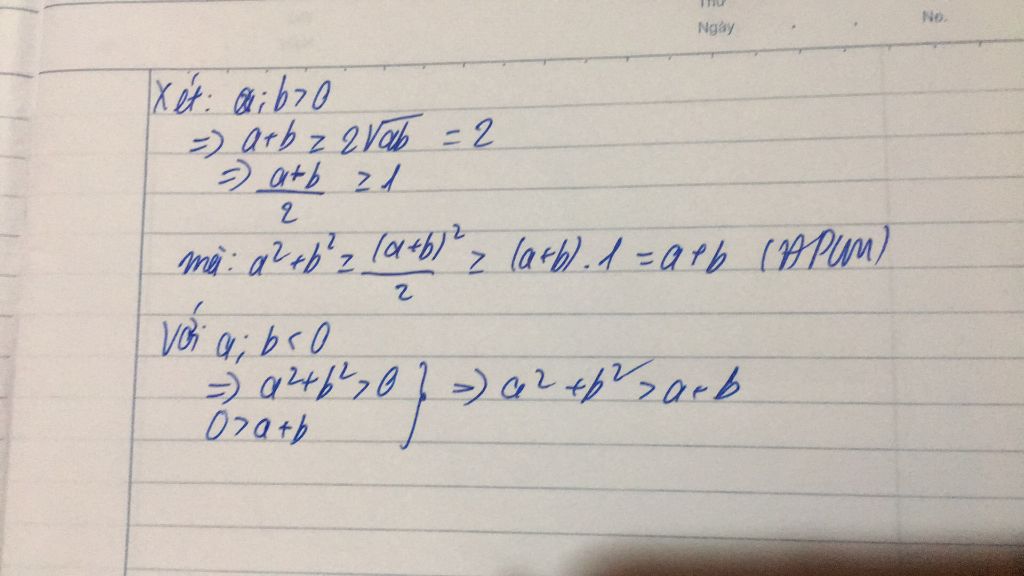 Thứ
Ngày . . No.
Xét: a; b > 0
=> a+b ≥ 2√ab = 2
=> a+b/2 ≥ 1
mà: a² + b² ≥ (a+b)²/2 ≥ (a+b).1 = a+b (ĐPCM)
Với a; b < 0
=> a²+b² > 0 } => a² + b² > a+b
0 > a+b